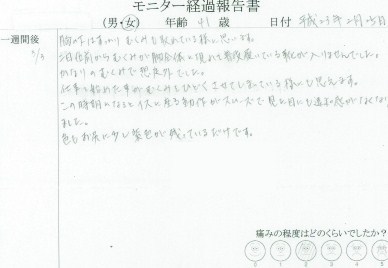 モニター経過報告書
(男・女) 年齢 41 歳 日付 平成23年2月25日
一週間後
3/3
胸の下はすっかりむくみも取れている様に思います。
2日位前からむくみが
に現れ普段履いている靴が入りませんでした。
かなりのむくみで想定外でした。
仕事を始めた事がむくみをひどくさせてしまっている様にも思えます。
この時期になるとイスに座る動作がスムーズで見た目にも違和感がなくなり
ました。
色もお
に少し紫色が残っているだけです。
痛みの程度はどのくらいでしたか?
0 1 2 3 4 5